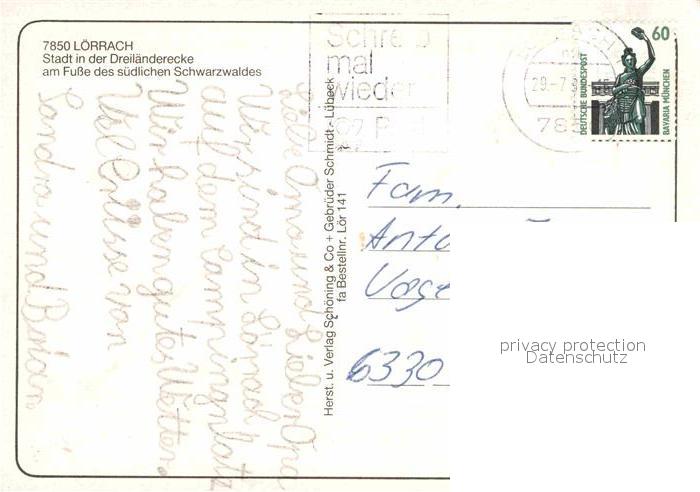 7850 LÖRRACH
Stadt in der Dreiländerecke
am Fuße des südlichen Schwarzwaldes
Schreib
mal
wieder
29.-7.
78
60
DEUTSCHE BUNDESPOST
BAVARIA MÜNCHEN
Liebe Oma und Lieber Opa
Wir sind in Lörrach
auf dem Campingplatz
Wir haben gutes Wetter.
Viel Grüsse von
Sandra und
Herst. u. Verlag Schöning & Co + Gebrüder Schmidt - Lübeck
fa Bestellnr. Lör 141
Fam.
6330
privacy protection
Datenschutz